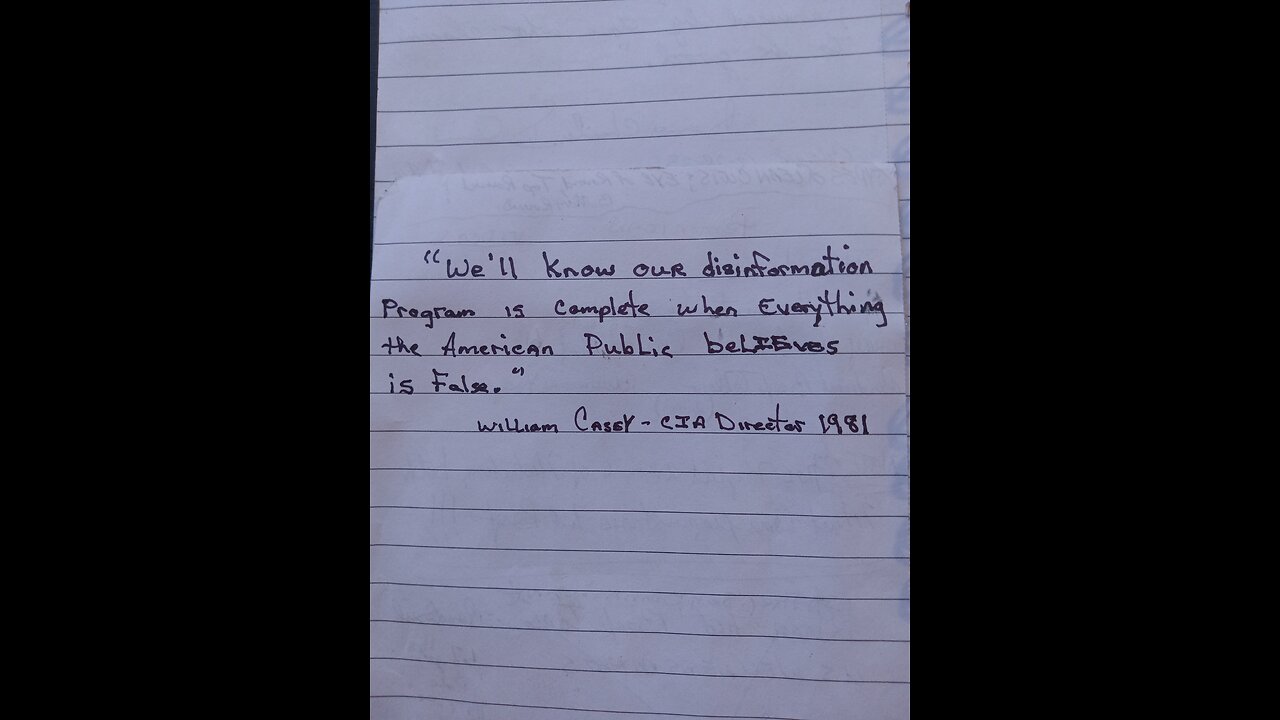 "We'll know our disinformation
Program is Complete when Everything
the American Public beLIEves
is False."
William Casey - CIA Director 1981